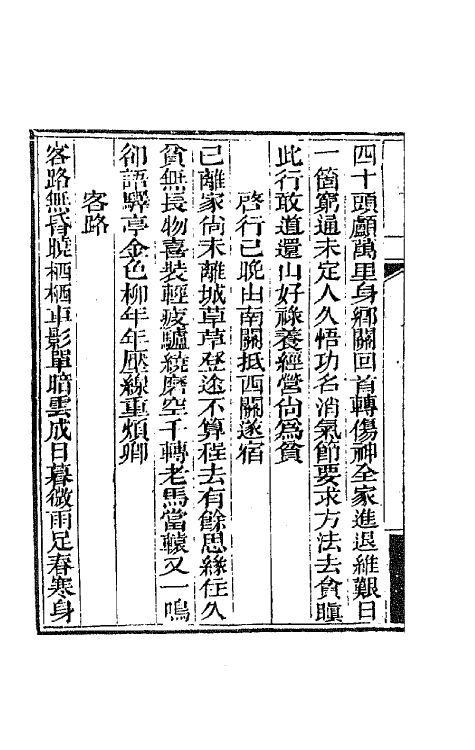 四十頭顱萬里身鄉關回首轉傷神全家進退維艱日
一箇窮通未定人久悟功名消氣節要求方法去貪瞋
此行敢道還山好祿養經營尚爲貧
啓行已晚由南關抵西關遂宿
已離家尚未離城草草登途不算程去有餘思緣住久
貧無長物喜裝輕疲驢繞磨空千轉老馬當轅又一鳴
卻語驛亭金色柳年年壓線重煩卿
客路
客路無昏曉栖栖車影單暗雲成日暮微雨足春寒身